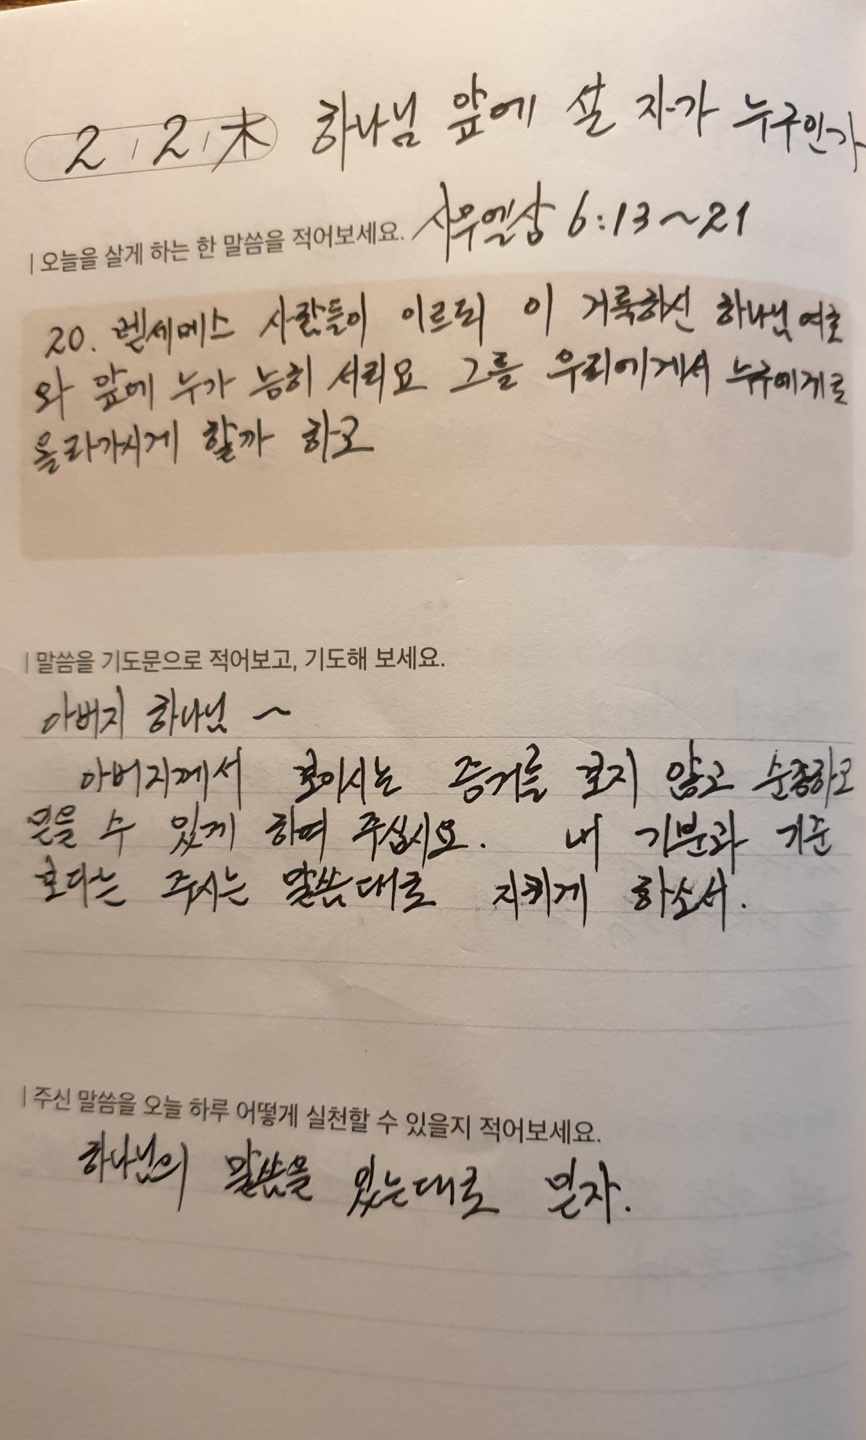 2 / 2 / 木 하나님 앞에 설 자가 누구인가
| 오늘을 살게 하는 한 말씀을 적어보세요. 사무엘상 6:13~21
20. 벧세메스 사람들이 이르되 이 거룩하신 하나님 여호
와 앞에 누가 능히 서리요 그를 우리에게서 누구에게로
올라가시게 할까 하고
| 말씀을 기도문으로 적어보고, 기도해 보세요.
아버지 하나님 ~
아버지께서 보이시는 증거를 보지 않고 순종하고
믿을 수 있게 하여 주십시요. 내 기분과 기준
보다는 주시는 말씀대로 지키게 하소서.
| 주신 말씀을 오늘 하루 어떻게 실천할 수 있을지 적어보세요.
하나님의 말씀을 있는대로 믿자.